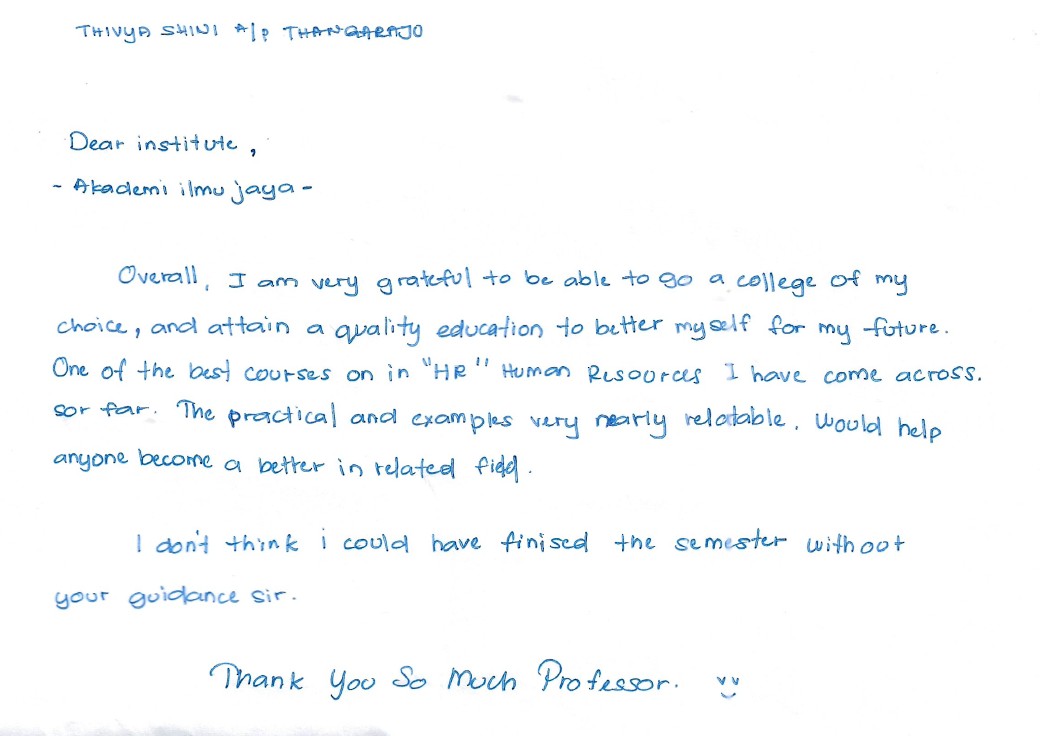 THIVYA SHINI A/P THANGARAJO
Dear institute,
- Akademi ilmu jaya -
Overall, I am very grateful to be able to go a college of my
choice, and attain a quality education to better myself for my future.
One of the best courses on in "HR" Human Resources I have come across.
sor far. The practical and examples very nearly relatable. Would help
anyone become a better in related field.
I don't think i could have finised the semester without
your guidance sir.
Thank You So Much Professor.